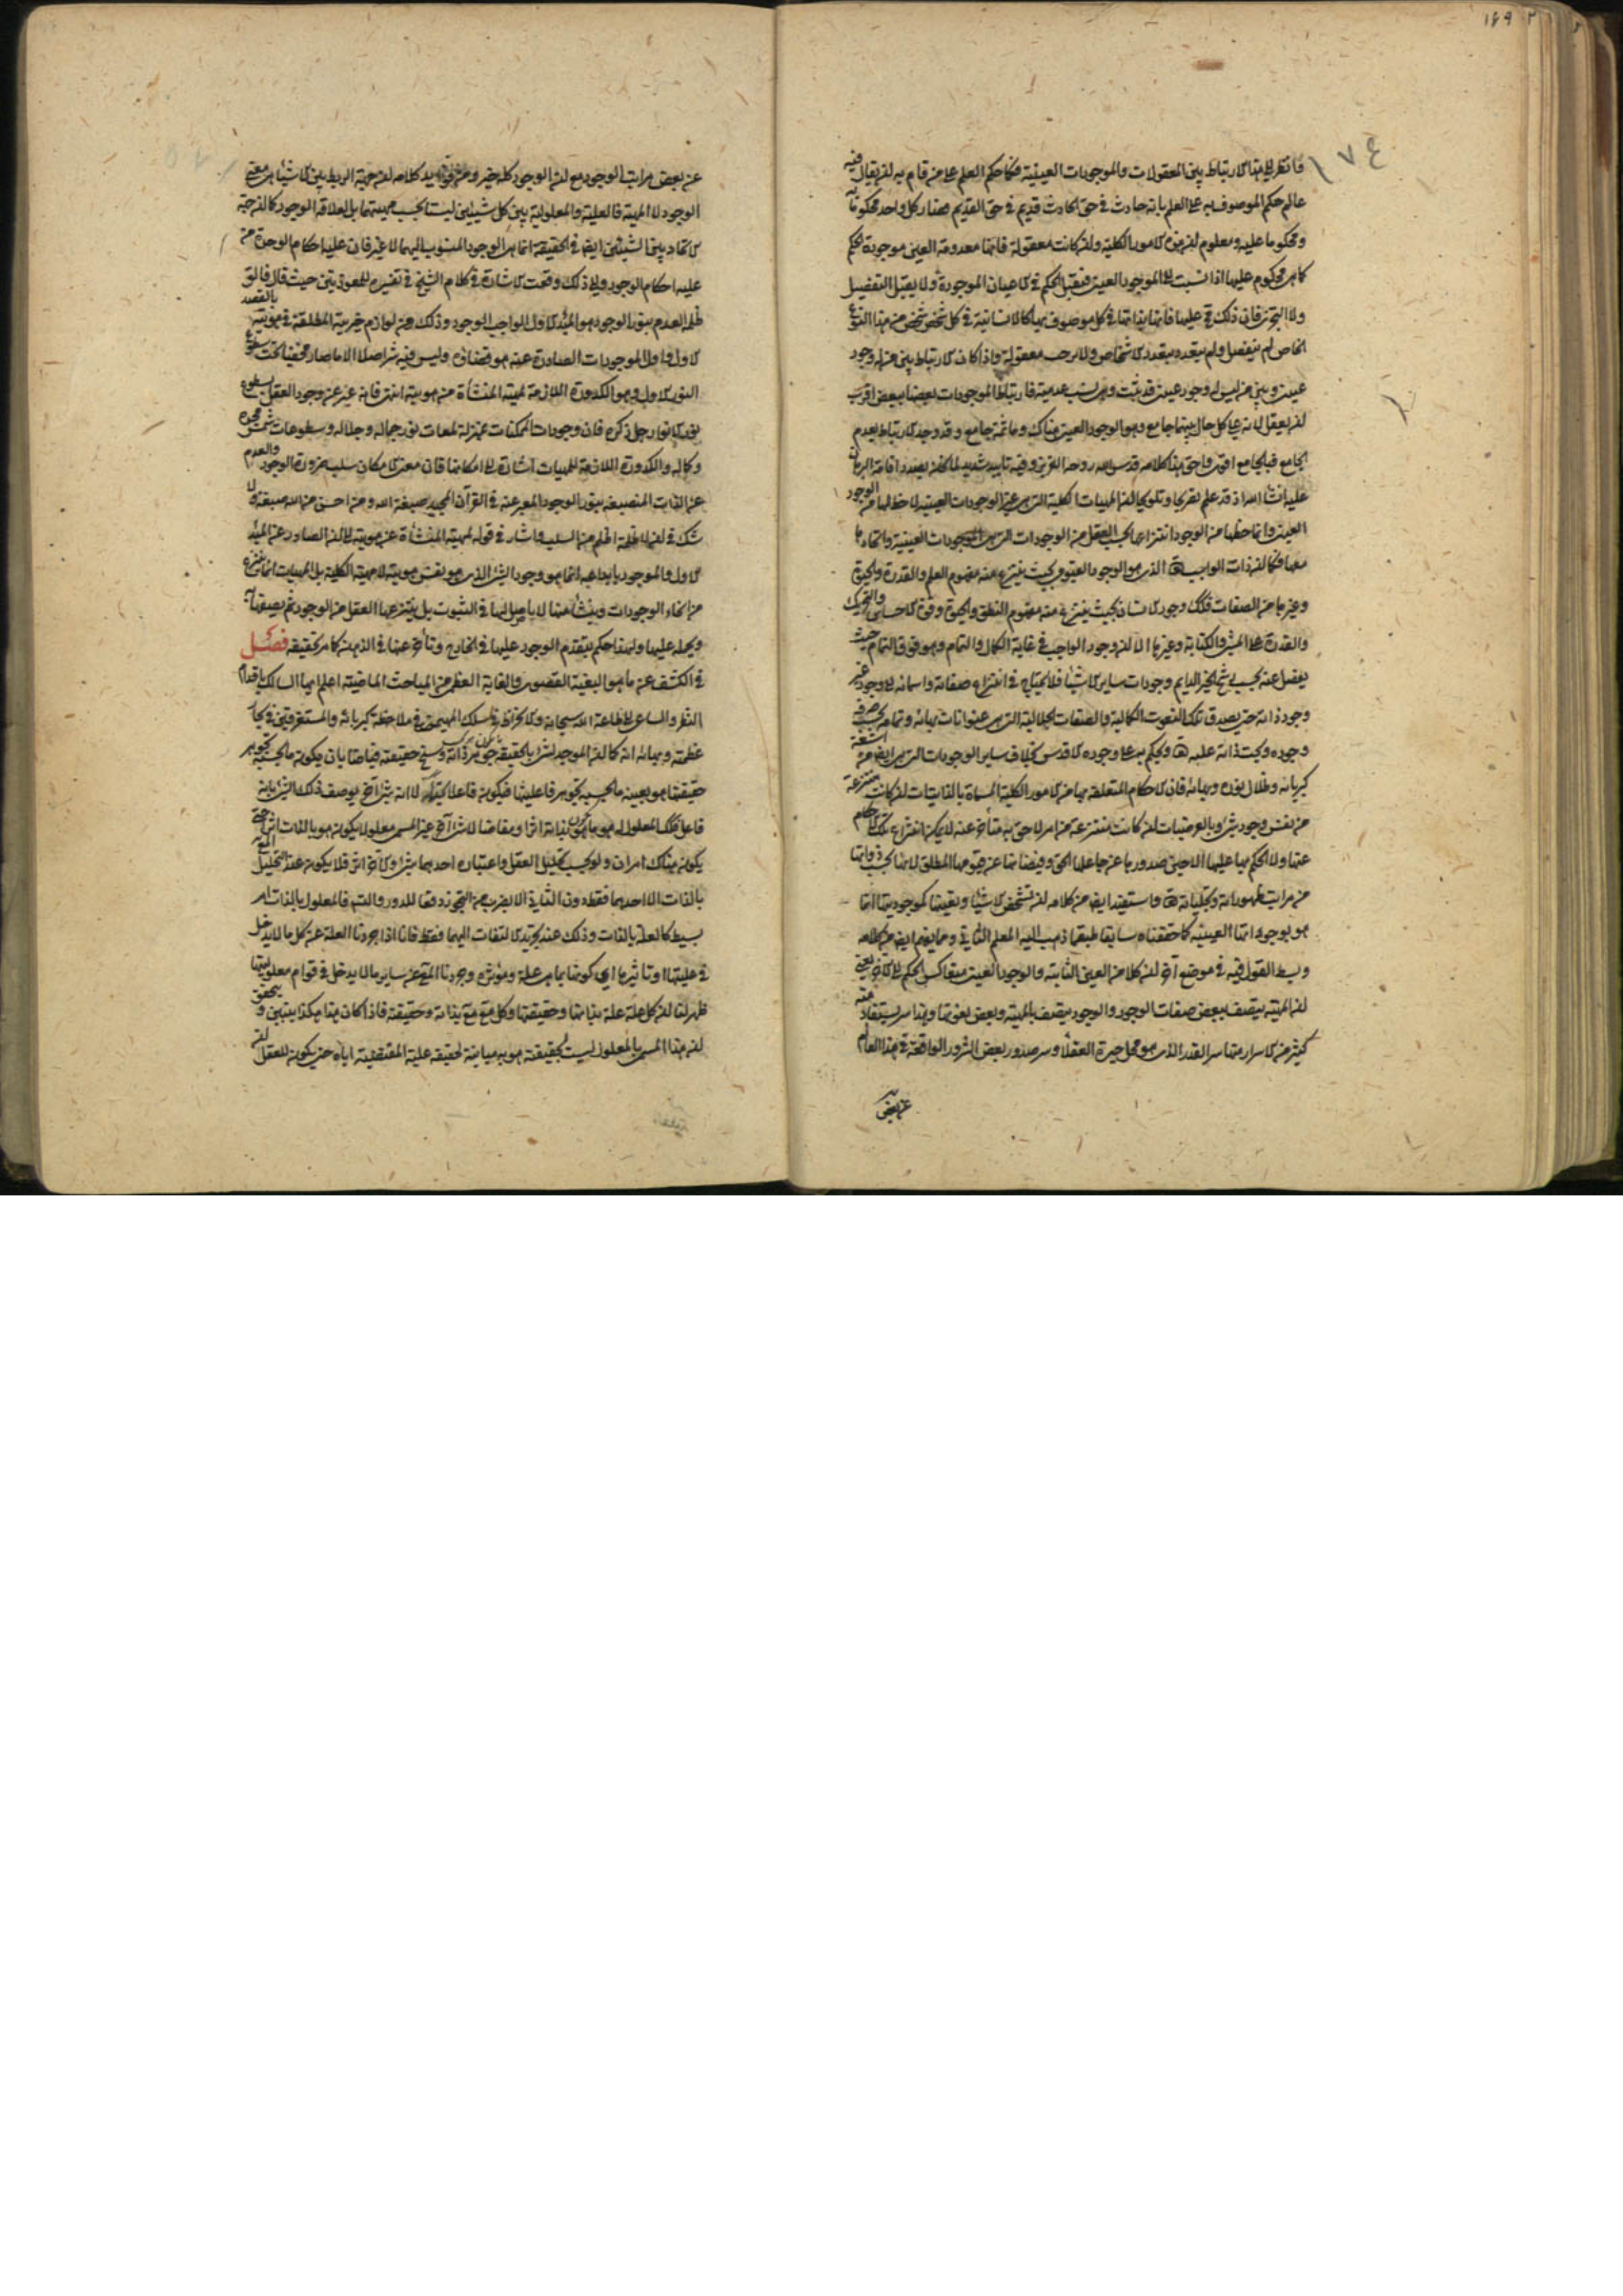 ١٦٩
١٧٤
فانظر الى هذا الارتباط بين المعقولات والموجودات العينية فكما حكم العلم على من قام به ان يقال فيه
عالم حكم الموصوف به على العلم بانه حادث في حق الحادث قديم في حق القديم فصار كل واحد محكوما به
ومحكوما عليه ومعلوم ان هذه الامور الكلية وان كانت معقولة فانها معدومة العين موجودة الحكم
كما هي محكوم عليها اذا نسبت الى الموجود العيني فتقبل الحكم في الاعيان الموجودة ولا يقبل التفصيل
ولا التجزي فان ذلك مح عليها فانها بذاتها في كل موصوف بها كالانسانية في كل شخص شخص من هذا النوع
الخاص لم يتفصل ولم يتعدد بتعدد الاشخاص ولا برحت معقولة واذا كان الارتباط بين من له وجود
عيني وبين من ليس له وجود عيني قد ثبت وهي نسب عدمية فارتباط الموجودات بعضها ببعض اقرب
ان يعقل لانه على كل حال بينها جامع وهو الوجود العيني وهناك وما ثمة جامع وقد وجد الارتباط بعدم
الجامع فبالجامع اقوى واحق هذا كلامه قدس الله روحه العزيز وفيه تاييد شديد لما نحن بصدد اقامة البرهان
عليه انشاء الله اذ قد علم تصريحا وتلويحا ان المهيات الكلية التي هي غير الوجودات العينية لا حظ لها من الوجود
العيني وانما حظها من الوجود انتزاعها بحسب العقل من الوجودات التي هي الموجودات العينية واتحادها
معها فكما ان ذات الواجب تع الذي هو الوجود القيوم بحيث ينتزع منه مفهوم العلم والقدرة والحيوة
وغيرها من الصفات فكك وجود الانسان بحيث ينتزع منه مفهوم النطق والحيوة وقوة الاحساس والتحريك
والقدرة على المشي والكتابة وغيرها الا ان وجود الواجب في غاية الكمال والتمام وهو فوق التمام حيث
يفضل عنه بحسب رشح الخير الدايم وجودات ساير الاشياء فلا يحتاج في انتزاع صفاته واسمائه الى وجود غير
وجود ذاته حتى يصدق تلك النعوت الكمالية والصفات الجلالية التي هي عنوانات بهائه وتمامه بحسب صرف
وجوده وبحت ذاته عليه تع ويحكم بها على وجوده الاقدس بخلاف ساير الوجودات التي هي ايضا من اشعة
كبريائه وظلال نوره وبهائه فان الاحكام المتعلقة بها من الامور الكلية المسماة بالذاتيات ان كانت منتزعة
من نفس وجود شيء وبالعرضيات ان كانت منتزعة من امر لاحق به متأخر عنه لا يمكن انتزاع تلك الاحكام
عنها ولا الحكم بها عليها الا حين صدورها عن جاعلها الحق وفيضانها عن قيومها المطلق لانها بحسب ذواتها
من مراتب ظهوراته وتجلياته تع واستفيد ايضا من كلامه ان تشخص الاشياء وتعينها كموجوديتها انما
هو بوجوداتها العينية كما حققناه سابقا طبقا لما ذهب اليه المعلم الثاني ومما يفهم ايضا من كلامه
وبسط القول فيه في موضع آخر ان كلا من العين الثابتة والوجود العيني متعاكس الحكم الى الاخر يعني
ان المهية يتصف ببعض صفات الوجود والوجود يتصف بالمهية وبعض نعوتها وهذا سر يستفاد منه
كثير من الاسرار منها سر القدر الذي هو محل حيرة العقلاء وسر صدور بعض الشرور الواقعة في هذا العالم
عن بعض
عن بعض مراتب الوجود مع ان الوجود كله خير ومن فوايد كلامه ان جهة الربط بين الاشياء هي معنى
الوجود لا المهية فالعلية والمعلولية بين كل شيئين ليستا بحسب مهيتهما بل لعلاقة الوجود كما ان جهة
الاتحاد بين الشيئين ايضا في الحقيقة انما هي الوجود المنسوب اليهما لا غير فان غلبة احكام الوحدة من
غلبة احكام الوجود والى ذلك وقعت الاشارة في كلام الشيخ في تفسيره للمعوذتين حيث قال فالق
ظلمة العدم بنور الوجود هو المبدء الاول الواجب الوجود وذلك من لوازم خيريته المطلقة في هويته بالقصد
الاول واول الموجودات الصادرة عنه هو قضاؤه وليس فيه شر اصلا الا ما صار مخفيا تحت سطوع
النور الاول وهو الكدورة اللازمة لمهيته المنشأة من هويته انتهى فانه عبر عن وجود العقل بسطوع
نور الانوار جل ذكره فان وجودات الممكنات بمنزلة لمعات نور جماله وجلاله وسطوعات شمس مجده
وكماله والكدورة اللازمة للمهيات اشارة الى امكانها فان معنى الامكان سلب ضرورة الوجود والعدم
عن الذات المنصبغة بنور الوجود المعبر عنه في القرآن المجيد بصبغة الله ومن احسن من الله صبغة ولا
شك في ان لا ظلمة اظلم من السلب واشار في قوله لمهيته المنشأة عن هويته الى ان الصادر عن المبدء
الاول والموجود بابداعه انما هو وجود الشيء الذي هو نفس هويته لا مهيته الكلية بل المهيات انما ينتزع
من انحاء الوجودات وينشأ منها لا تأصل لها في الثبوت بل ينتزعها العقل من الوجود ثم يصفها به
ويحمله عليها ولهذا حكم بتقدم الوجود عليها في الخارج وتأخره عنها في الذهن كما مر تحقيقه فصل
في الكشف عن ما هو البغية القصوى والغاية العظمى من المباحث الماضية اعلم ايها السالك باقدام
النظر والساعي الى طاعة الله سبحانه والانخراط في سلك المهيمين في ملاحظة كبريائه والمستغرقين في بحار
عظمته وبهائه انه كما ان الموجد لشيء بالحقيقة ما يكون بحسب جوهر ذاته وسنخ حقيقته فياضا بان يكون ما بحسب تجوهر
حقيقتها هو بعينه ما بحسب تجوهر فاعليتها فيكون فاعلا بحتا لا انه شيء آخر يوصف ذلك الشيء بانه
فاعل فكك المعلول له هو ما يكون بذاته اثرا ومفاضا لا شيء آخر غير المسمى معلولا يكون هو بالذات اثرا حتى
يكون هناك امران ولو بحسب تحليل العقل واعتباره احدهما شيء والاخر اثر فلا يكون عند التحليل المعلول
بالذات الا احدهما فقط دون الثاني الا بضرب من التجوز دفعا للدور والتس فالمعلول بالذات امر
بسيط كالعلة بالذات وذلك عند تجريد الالتفات اليهما فقط فانا اذا جردنا العلة عن كل ما لا يدخل
في عليتها وتاثيرها اي كونها بما هي علة ومؤثرة وجردنا المعلول عن ساير ما لا يدخل في قوام معلوليتها
ظهر لنا ان كل علة علة بذاتها وحقيقتها وكل مع مع بذاته وحقيقته فاذا كان هذا هكذا يتبين ويتحقق
ان هذا المسمى بالمعلول ليست لحقيقته هوية مباينة لحقيقة علته المفيضة اياه حتى يكون للعقل ان